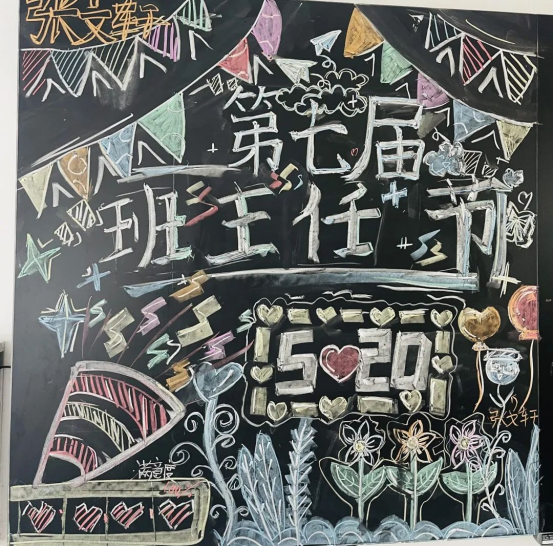 张文轩
第七届
班主任节
5 20
张文轩
满意度